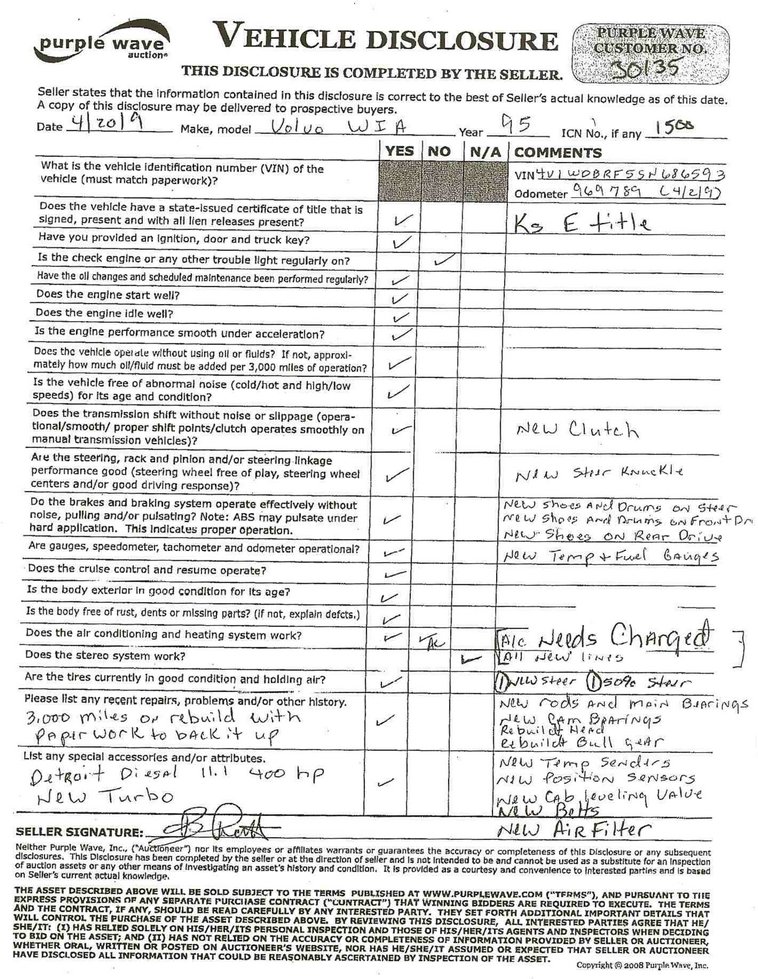 purple wave
auction®
VEHICLE DISCLOSURE
PURPLE WAVE
CUSTOMER NO.
30135
THIS DISCLOSURE IS COMPLETED BY THE SELLER.
Seller states that the information contained in this disclosure is correct to the best of Seller's actual knowledge as of this date.
A copy of this disclosure may be delivered to prospective buyers.
Date 4/20/9 Make, model Volvo WIA Year 95 ICN No., if any 1500
YES NO N/A COMMENTS
What is the vehicle identification number (VIN) of the
vehicle (must match paperwork)?
VIN 4V1WDBRF5SN686593
Odometer 969789 (4/2/9)
Does the vehicle have a state-issued certificate of title that is
signed, present and with all lien releases present? ✓ Ks E title
Have you provided an ignition, door and truck key? ✓
Is the check engine or any other trouble light regularly on? ✓
Have the oil changes and scheduled maintenance been performed regularly? ✓
Does the engine start well? ✓
Does the engine idle well? ✓
Is the engine performance smooth under acceleration? ✓
Does the vehicle operate without using oil or fluids? If not, approxi-
mately how much oil/fluid must be added per 3,000 miles of operation? ✓
Is the vehicle free of abnormal noise (cold/hot and high/low
speeds) for its age and condition? ✓
Does the transmission shift without noise or slippage (opera-
tional/smooth/ proper shift points/clutch operates smoothly on
manual transmission vehicles)? ✓ New Clutch
Are the steering, rack and pinion and/or steering linkage
performance good (steering wheel free of play, steering wheel
centers and/or good driving response)? ✓ New Steer Knuckle
Do the brakes and braking system operate effectively without
noise, pulling and/or pulsating? Note: ABS may pulsate under
hard application. This indicates proper operation. ✓
New Shoes And Drums on Steer
New Shoes And Drums on Front Dr
New Shoes on Rear Drive
Are gauges, speedometer, tachometer and odometer operational? ✓ New Temp + Fuel Gauges
Does the cruise control and resume operate? ✓
Is the body exterior in good condition for its age? ✓
Is the body free of rust, dents or missing parts? (if not, explain defcts.) ✓
Does the air conditioning and heating system work? ✓ Ac A/c Needs Charged
Does the stereo system work? ✓ All New lines
Are the tires currently in good condition and holding air? ✓ 1 New Steer 1 50% Steer
Please list any recent repairs, problems and/or other history.
3,000 miles on rebuild with
paper work to back it up ✓
New rods And main Bearings
New Cam Bearings
Rebuildt Head
Rebuildt Bull Gear
List any special accessories and/or attributes.
Detroit Diesal 11.1 400 hp
New Turbo ✓
New Temp Senders
New Position Sensors
New Cab leveling Value
New Belts
New Air Filter
SELLER SIGNATURE:
Neither Purple Wave, Inc., ("Auctioneer") nor its employees or affiliates warrants or guarantees the accuracy or completeness of this Disclosure or any subsequent
disclosures. This Disclosure has been completed by the seller or at the direction of seller and is not intended to be and cannot be used as a substitute for an inspection
of auction assets or any other means of investigating an asset's history and condition. It is provided as a courtesy and convenience to interested parties and is based
on Seller's current actual knowledge.
THE ASSET DESCRIBED ABOVE WILL BE SOLD SUBJECT TO THE TERMS PUBLISHED AT WWW.PURPLEWAVE.COM ("TERMS"), AND PURSUANT TO THE
EXPRESS PROVISIONS OF ANY SEPARATE PURCHASE CONTRACT ("CONTRACT") THAT WINNING BIDDERS ARE REQUIRED TO EXECUTE. THE TERMS
AND THE CONTRACT, IF ANY, SHOULD BE READ CAREFULLY BY ANY INTERESTED PARTY. THEY SET FORTH ADDITIONAL IMPORTANT DETAILS THAT
WILL CONTROL THE PURCHASE OF THE ASSET DESCRIBED ABOVE. BY REVIEWING THIS DISCLOSURE, ALL INTERESTED PARTIES AGREE THAT HE/
SHE/IT: (I) HAS RELIED SOLELY ON HIS/HER/ITS PERSONAL INSPECTION AND THOSE OF HIS/HER/ITS AGENTS AND INSPECTORS WHEN DECIDING
TO BID ON THE ASSET; AND (II) HAS NOT RELIED ON THE ACCURACY OR COMPLETENESS OF INFORMATION PROVIDED BY SELLER OR AUCTIONEER,
WHETHER ORAL, WRITTEN OR POSTED ON AUCTIONEER'S WEBSITE, NOR HAS HE/SHE/IT ASSUMED OR EXPECTED THAT SELLER OR AUCTIONEER
HAVE DISCLOSED ALL INFORMATION THAT COULD BE REASONABLY ASCERTAINED BY INSPECTION OF THE ASSET.
Copyright © 2008 Purple Wave, Inc.